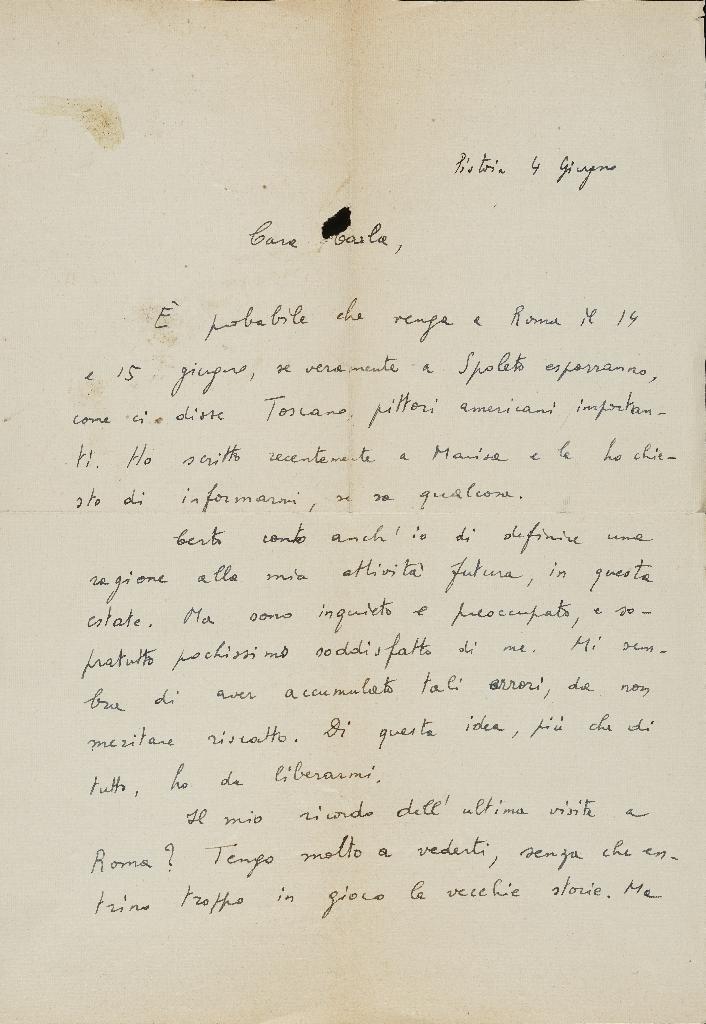 Pistoia 4 Giugno
Cara Carla,
È probabile che venga a Roma il 14
e 15 giugno, se veramente a Spoleto esporranno,
come ci disse Toscano, pittori americani importan-
ti. Ho scritto recentemente a Marisa e le ho chie-
sto di informarmi, se sa qualcosa.
Certo conto anch'io di definire una
ragione alla mia attività futura, in questa
estate. Ma sono inquieto e preoccupato, e so-
pratutto pochissimo soddisfatto di me. Mi sem-
bra di aver accumulato tali errori, da non
meritare riscatto. Di questa idea, più che di
tutto, ho da liberarmi.
Il mio ricordo dell'ultima visita a
Roma? Tengo molto a vederti, senza che en-
trino troppo in gioco le vecchie storie. Ma